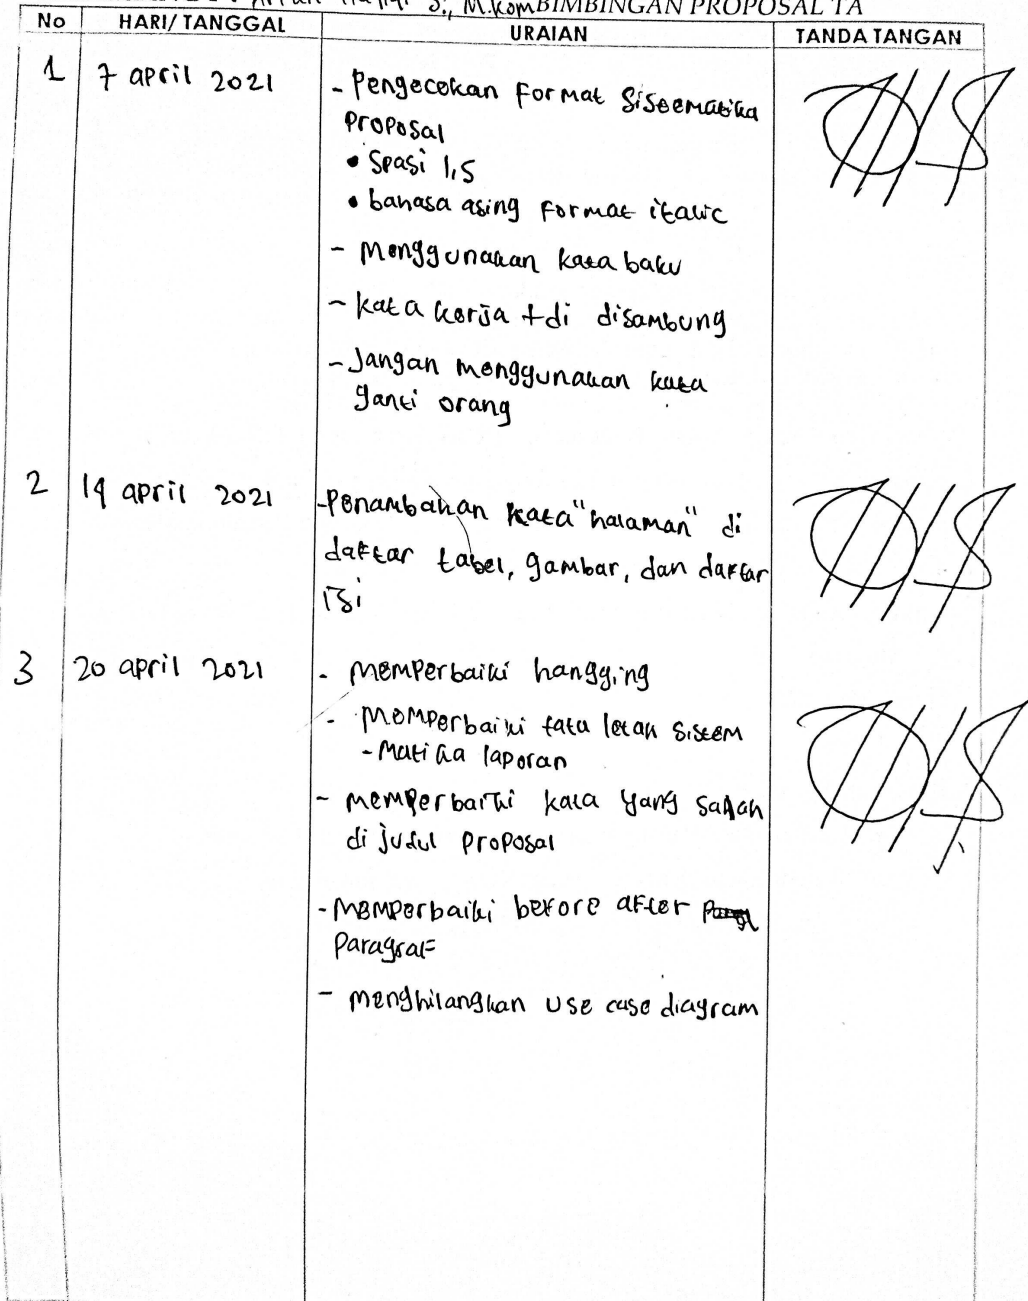 S., M.Kom BIMBINGAN PROPOSAL TA
No HARI/ TANGGAL URAIAN TANDA TANGAN
1 7 april 2021 - Pengecekan format Siseematika
proposal
• Spasi 1,5
• bahasa asing format italic
- Menggunakan kata baku
- kata kerja +di disambung
- Jangan menggunakan kata
ganti orang
2 14 april 2021 - Penambahan kata "halaman" di
daftar tabel, gambar, dan daftar
isi
3 20 april 2021 - memperbaiki hangging
- Memperbaiki tata letak sistem
- Matika laporan
- memperbaiki kata yang salah
di judul proposal
- Memperbaiki before after
Paragraf
- menghilangkan use case diagram